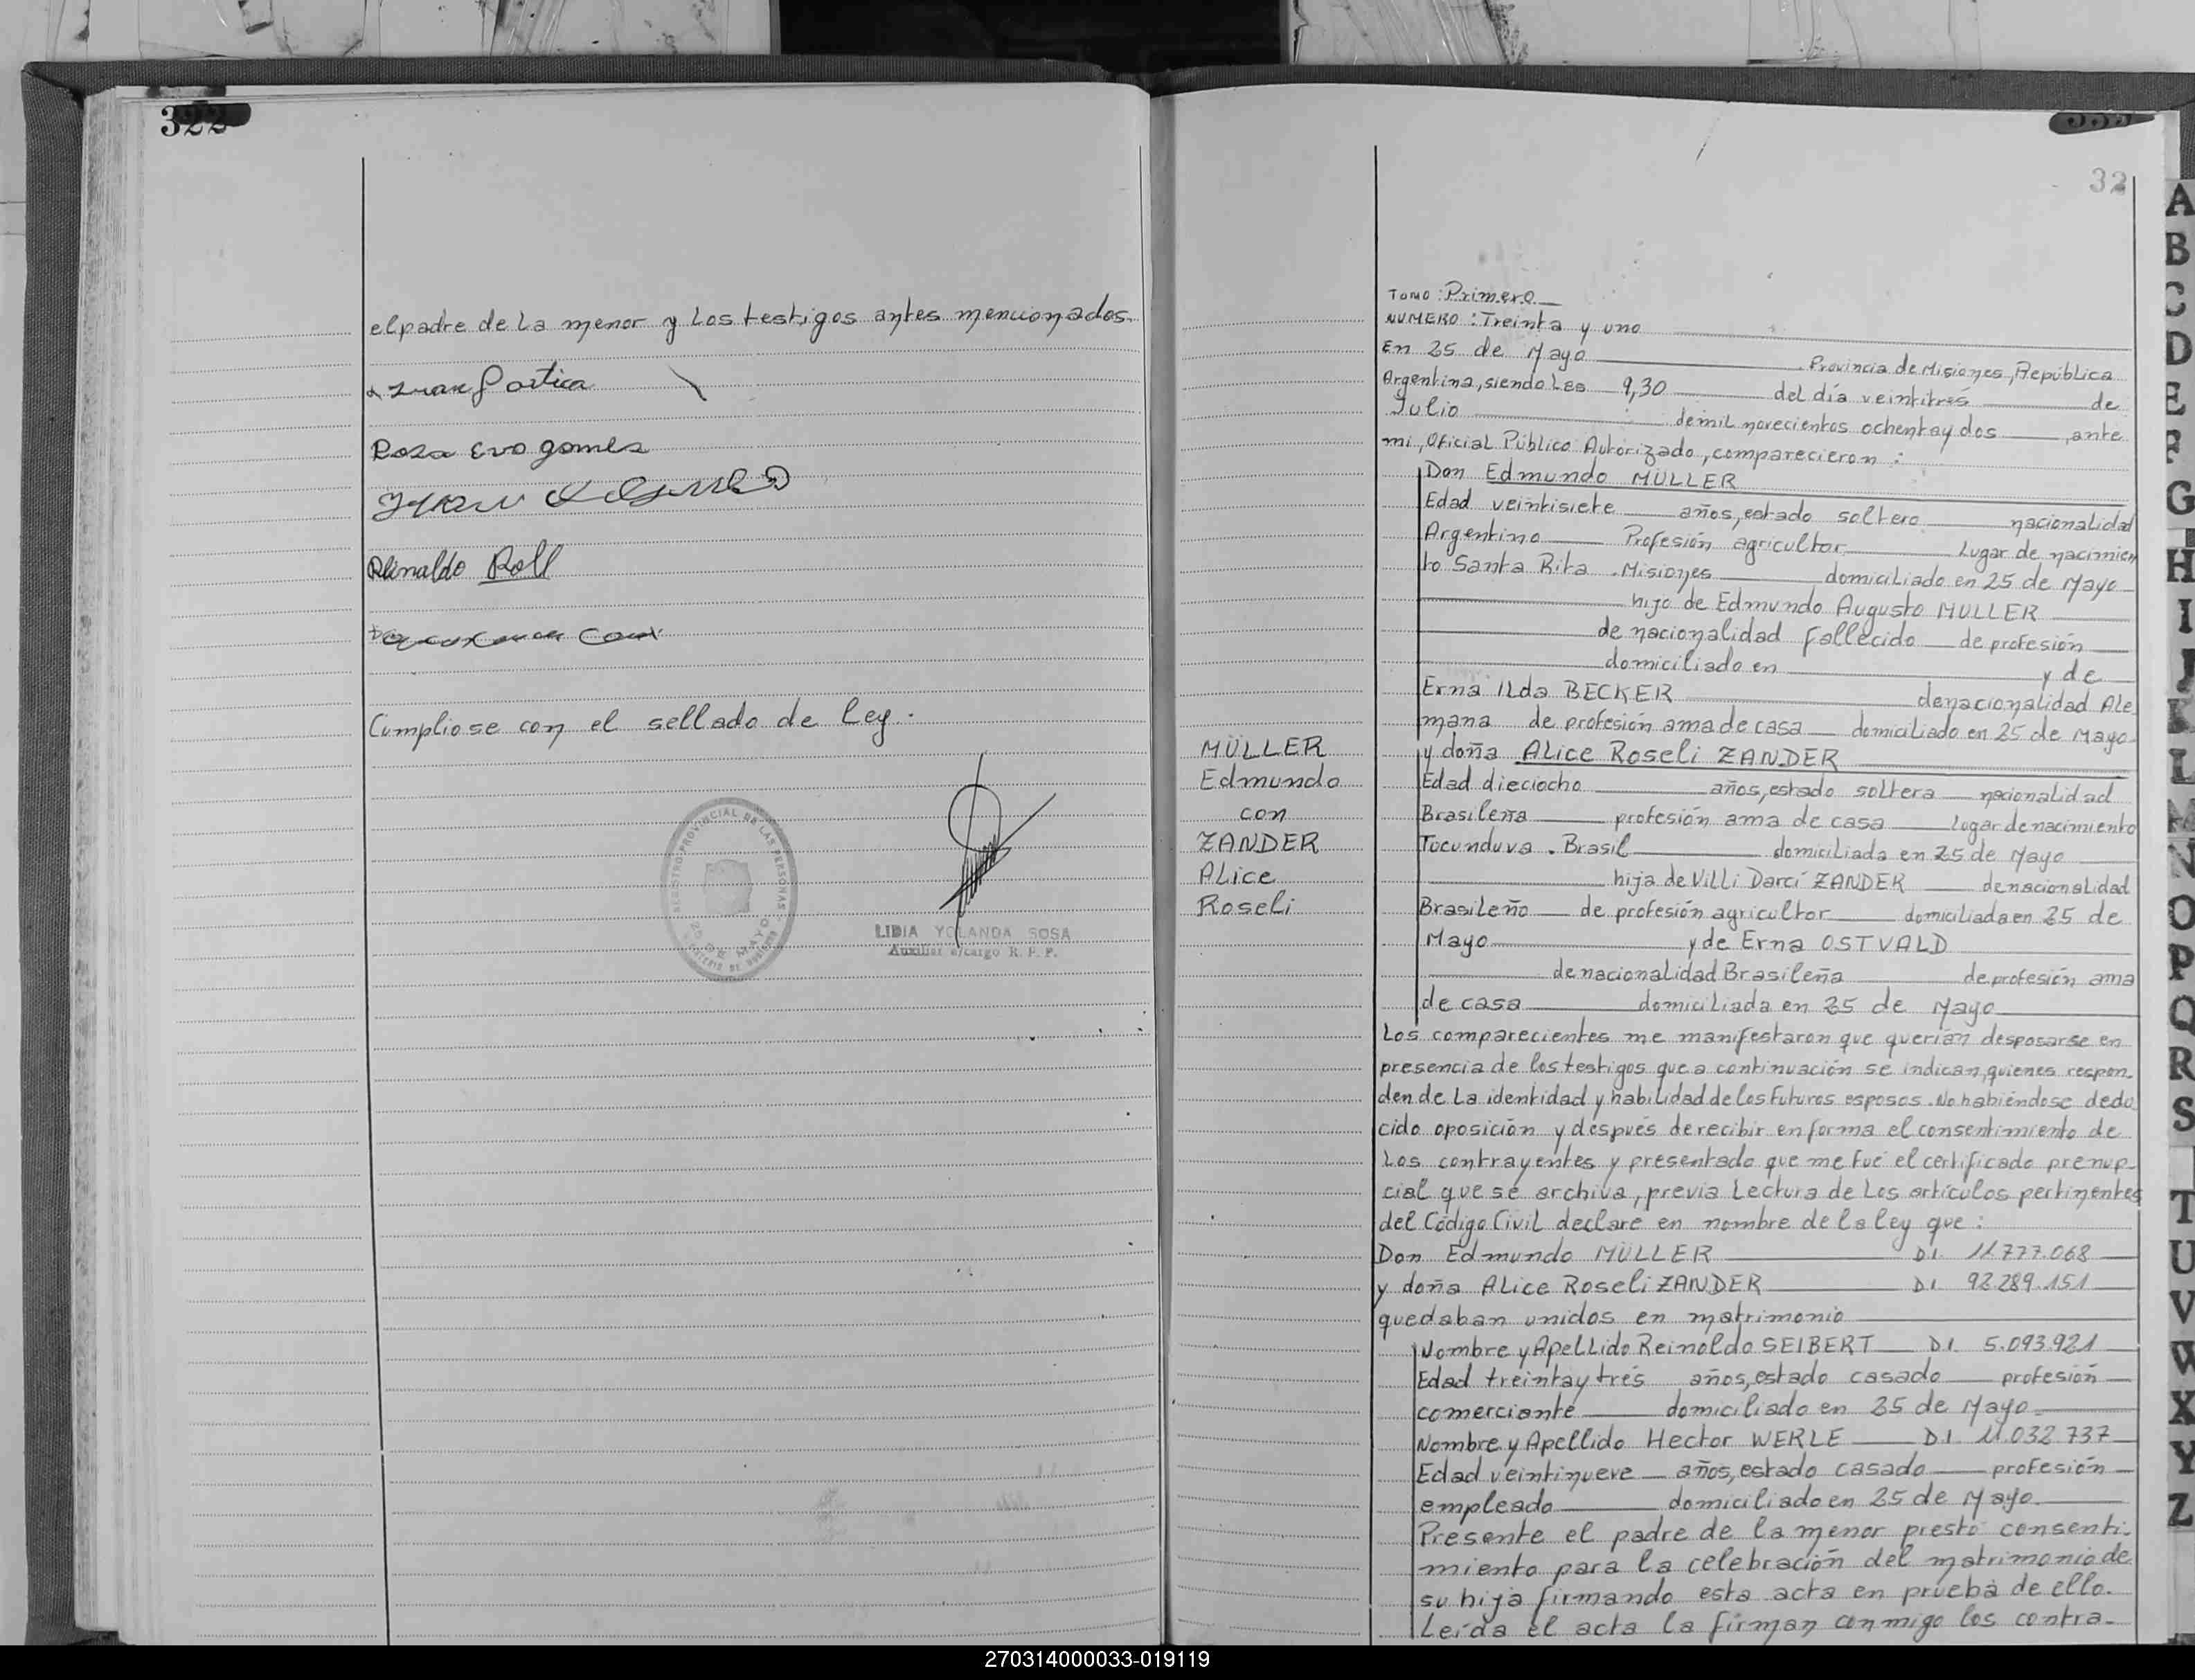 322
el padre de la menor y los testigos antes mencionados.
Rosa Eva gomes
Reinaldo Roll
Cumpliose con el sellado de ley.
REGISTRO PROVINCIAL DE LAS PERSONAS
25 DE MAYO
LIDIA YOLANDA SOSA
Auxiliar a/cargo R. P. P.
32
TOMO: Primero
NUMERO: Treinta y uno
En 25 de Mayo . Provincia de Misiones, República
Argentina, siendo las 9,30 del día veintitrés de
Julio de mil novecientos ochenta y dos, ante
mi, Oficial Público Autorizado, comparecieron:
Don Edmundo MÜLLER
Edad veintisiete años, estado soltero nacionalidad
Argentino Profesión agricultor Lugar de nacimien
to Santa Rita . Misiones domiciliado en 25 de Mayo
hijo de Edmundo Augusto MULLER
de nacionalidad fallecido de profesión
domiciliado en y de
Erna Ilda BECKER de nacionalidad Ale
mana de profesión ama de casa domiciliado en 25 de Mayo
y doña Alice Roseli ZANDER
Edad dieciocho años, estado soltera nacionalidad
Brasileña profesión ama de casa lugar de nacimiento
Tucunduva . Brasil domiciliada en 25 de Mayo
hija de Villi Darci ZANDER de nacionalidad
Brasileño de profesión agricultor domiciliada en 25 de
Mayo y de Erna OSTVALD
de nacionalidad Brasileña de profesión ama
de casa domiciliada en 25 de Mayo
MÜLLER
Edmundo
con
ZANDER
Alice
Roseli
Los comparecientes me manifestaron que querían desposarse en
presencia de los testigos que a continuación se indican, quienes respon-
den de la identidad y habilidad de los futuros esposos. No habiéndose dedu
cido oposición y después de recibir en forma el consentimiento de
los contrayentes y presentado que me fue el certificado prenup-
cial que se archiva, previa Lectura de los artículos pertinentes
del Código Civil declaré en nombre de la ley que:
Don Edmundo MÜLLER D.I. 11.777.068
y doña Alice Roseli ZANDER D.I. 92.289.151
quedaban unidos en matrimonio
Nombre y Apellido Reinoldo SEIBERT D.I. 5.093.921
Edad treinta y tres años, estado casado profesión
comerciante domiciliado en 25 de Mayo
Nombre y Apellido Hector WERLE D.I. 11.032.737
Edad veintinueve años, estado casado profesión
empleado domiciliado en 25 de Mayo
Presente el padre de la menor prestó consenti-
miento para la celebración del matrimonio de
su hija firmando esta acta en prueba de ello.
Leída el acta la firman conmigo los contra-
A
B
C
D
E
F
G
H
I
J
K
L
M
N
O
P
Q
R
S
T
U
V
W
X
Y
Z
270314000033-019119